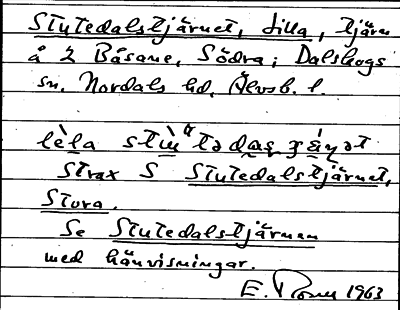 Stutedalstjärnet, Lilla, tjärn
å 2 Båsane, Södra; Dalskogs
sn, Nordals hd, Älvsb. l.
Strax S Stutedalstjärnet,
Stora.
Se Stutedalstjärnen
med hänvisningar.
E. 1963